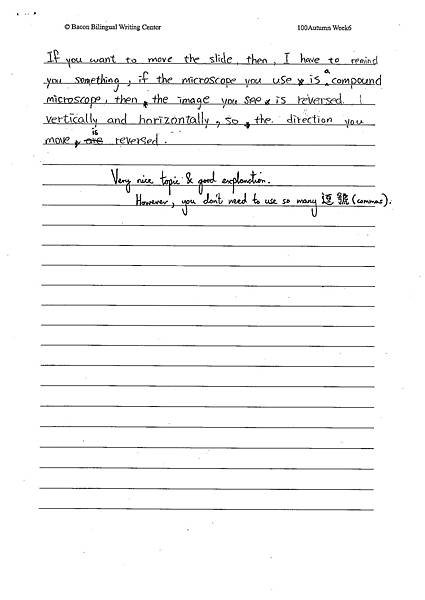 © Bacon Bilingual Writing Center 100Autumn Week6
If you want to move the slide, then, I have to remind
you something, if the microscope you use, is a compound
microscope, then, the image you see, is reversed
vertically and horizontally, so, the direction you
move, are is reversed.
Very nice topic & good explanation.
However, you don't need to use so many 逗號 (commas).